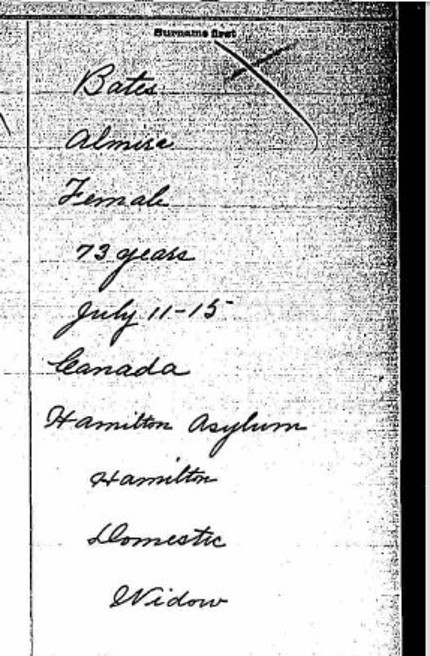 Surname first
Bates
Almira
Female
73 years
July 11-15
Canada
Hamilton Asylum
Hamilton
Domestic
Widow